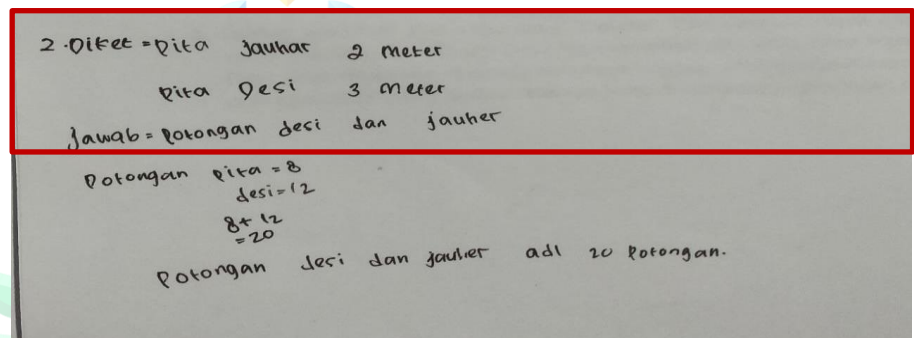 2. Diket = Pita Jauhar 2 meter
Pita Desi 3 meter
Jawab = Potongan desi dan jauher
Potongan pita = 8
desi = 12
8 + 12
= 20
Potongan desi dan jauher adl 20 Potongan.